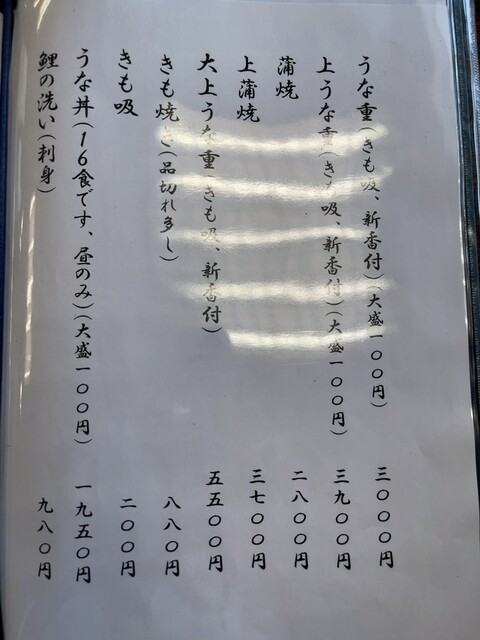 うな重(きも吸、新香付)(大盛一〇〇円) 三〇〇〇円
上うな重(きも吸、新香付)(大盛一〇〇円) 三九〇〇円
蒲焼 二八〇〇円
上蒲焼 三七〇〇円
大上うな重(きも吸、新香付) 五五〇〇円
きも焼き(品切れ多し) 八八〇円
きも吸 二〇〇円
うな丼(16食です、昼のみ)(大盛一〇〇円) 一九五〇円
鯉の洗い(刺身) 九八〇円